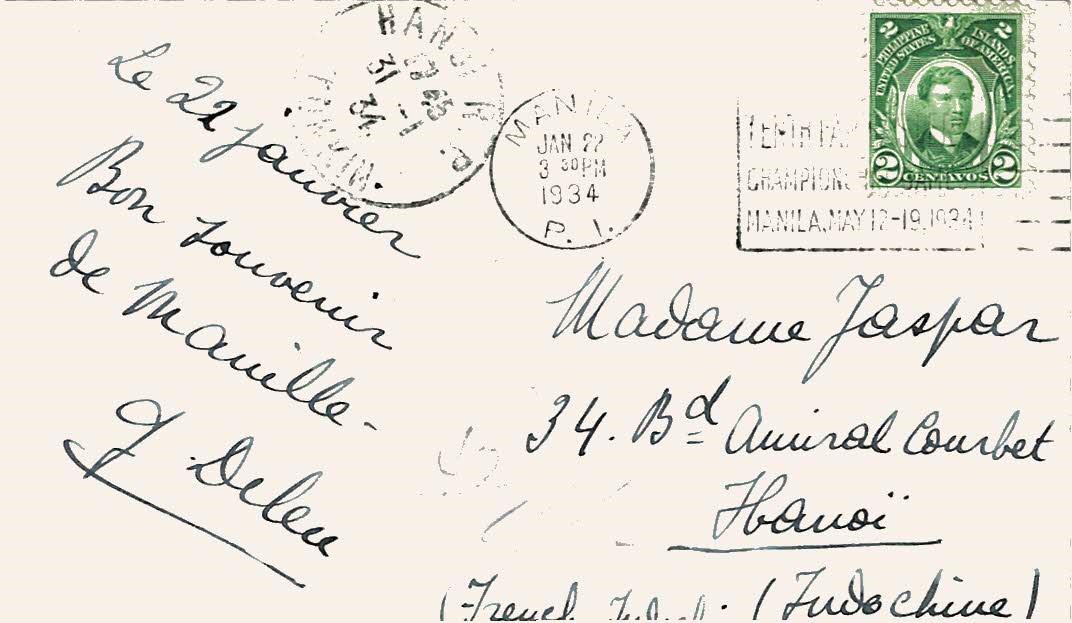 Le 22 Janvier
Bon souvenir
de Manille-
J Deleu
HANOI R.P
31 -1
34
TONKIN.
MANILA
JAN 22
3 30PM
1934
P. I.
CHAMPION
MANILA, MAY 12-19, 1934
PHILIPPINE ISLANDS,
UNITED STATES OF AMERICA
2 CENTAVOS 2
Madame Jaspar
34. Bd Amiral Courbet
Hanoï
(French (Indochine)